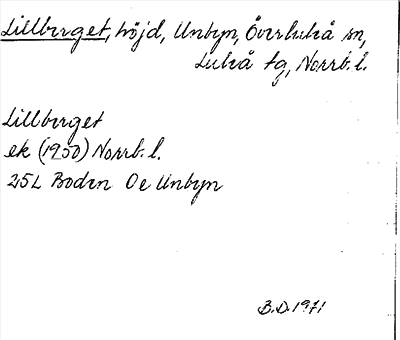 Lillberget, höjd, Unbyn, Överluleå sn,
Luleå tg, Norrb. l.
Lillberget
ek (1950) Norrb. l.
25L Boden Oe Unbyn
B.D. 1971